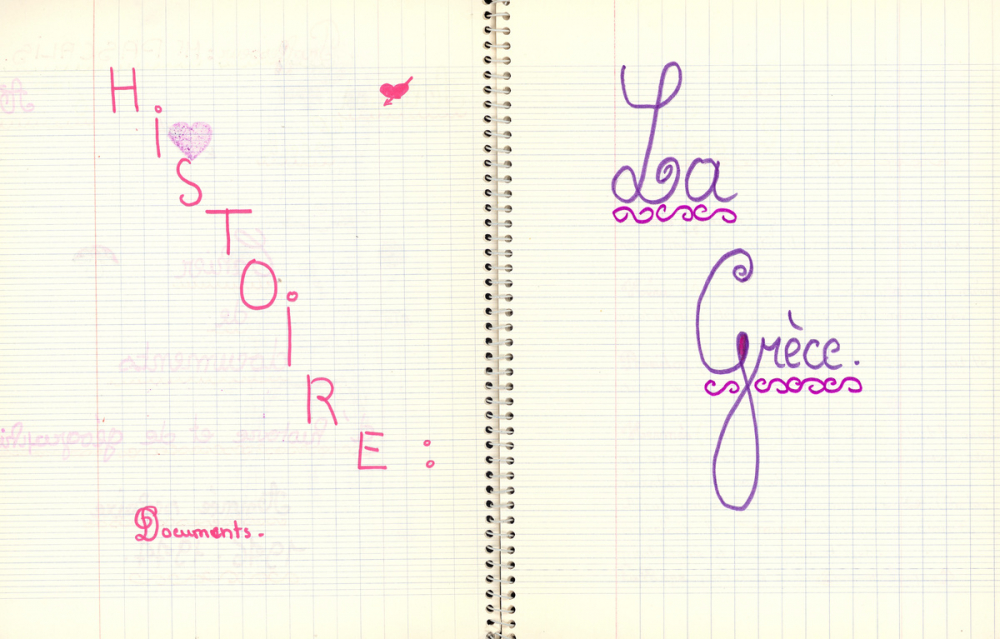 HiSTOiRE :
Documents.
La
Grèce.